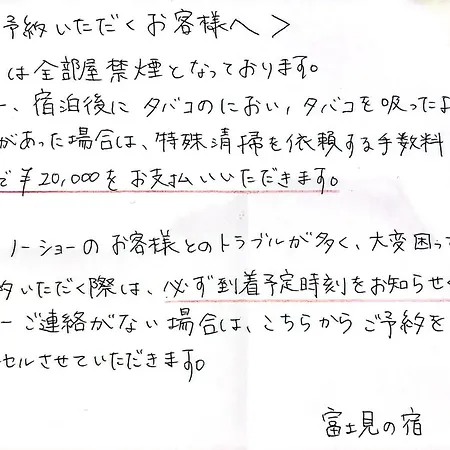 予約いただくお客様へ >
は全部屋禁煙となっております。
一、宿泊後にタバコのにおい,タバコを吸ったよ
があった場合は、特殊清掃を依頼する手数料
で¥20,000をお支払いいただきます。
ノーショーのお客様とのトラブルが多く、大変困って
いただく際は、必ず到着予定時刻をお知らせく
一ご連絡がない場合は、こちらからご予約を
ンセルさせていただきます。
富士見の宿